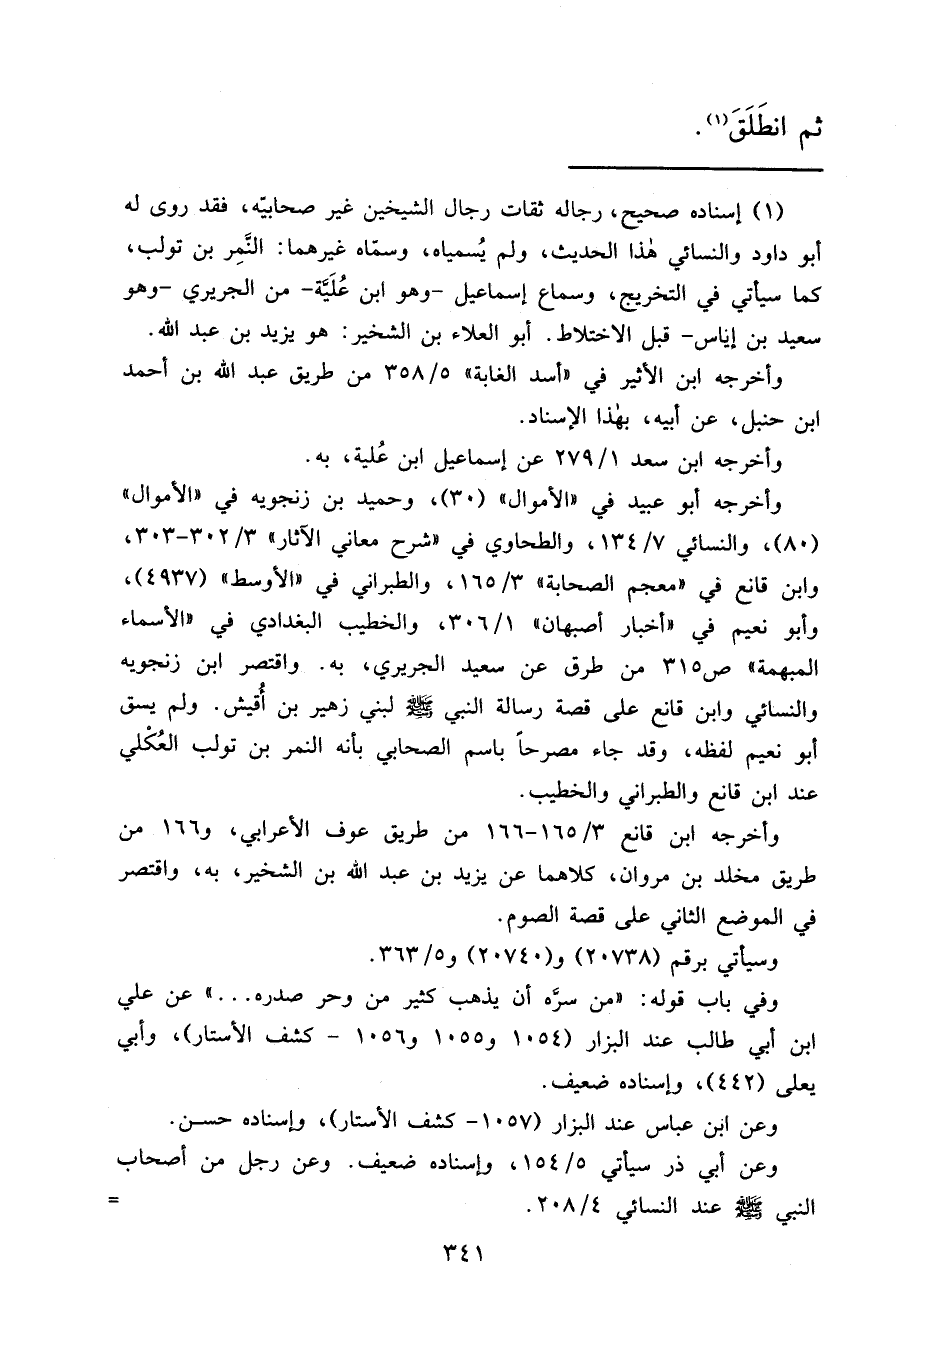 ثم انطَلَقَ(١).
(١) إسناده صحيح، رجاله ثقات رجال الشيخين غير صحابيّه، فقد روى له
أبو داود والنسائي هٰذا الحديث، ولم يُسمياه، وسمّاه غيرهما: النَّمِر بن تولب،
كما سيأتي في التخريج، وسماع إسماعيل -وهو ابن عُلَيَّة- من الجريري -وهو
سعيد بن إياس- قبل الاختلاط. أبو العلاء بن الشخير: هو يزيد بن عبد الله.
وأخرجه ابن الأثير في «أسد الغابة» ٣٥٨/٥ من طريق عبد الله بن أحمد
ابن حنبل، عن أبيه، بهٰذا الإسناد.
وأخرجه ابن سعد ٢٧٩/١ عن إسماعيل ابن عُلية، به.
وأخرجه أبو عبيد في «الأموال» (٣٠)، وحميد بن زنجويه في «الأموال»
(٨٠)، والنسائي ١٣٤/٧، والطحاوي في «شرح معاني الآثار» ٣٠٢/٣-٣٠٣،
وابن قانع في «معجم الصحابة» ١٦٥/٣، والطبراني في «الأوسط» (٤٩٣٧)،
وأبو نعيم في «أخبار أصبهان» ٣٠٦/١، والخطيب البغدادي في «الأسماء
المبهمة» ص٣١٥ من طرق عن سعيد الجريري، به. واقتصر ابن زنجويه
والنسائي وابن قانع على قصة رسالة النبي ﷺ لبني زهير بن أُقيش. ولم يسق
أبو نعيم لفظه، وقد جاء مصرحاً باسم الصحابي بأنه النمر بن تولب العُكْلي
عند ابن قانع والطبراني والخطيب.
وأخرجه ابن قانع ١٦٥/٣-١٦٦ من طريق عوف الأعرابي، و١٦٦ من
طريق مخلد بن مروان، كلاهما عن يزيد بن عبد الله بن الشخير، به، واقتصر
في الموضع الثاني على قصة الصوم.
وسيأتي برقم (٢٠٧٣٨) و(٢٠٧٤٠) و٣٦٣/٥.
وفي باب قوله: «من سرَّه أن يذهب كثير من وحر صدره...» عن علي
ابن أبي طالب عند البزار (١٠٥٤ و١٠٥٥ و١٠٥٦ - كشف الأستار)، وأبي
يعلى (٤٤٢)، وإسناده ضعيف.
وعن ابن عباس عند البزار (١٠٥٧- كشف الأستار)، وإسناده حسن.
وعن أبي ذر سيأتي ١٥٤/٥، وإسناده ضعيف. وعن رجل من أصحاب
النبي ﷺ عند النسائي ٢٠٨/٤. =
٣٤١